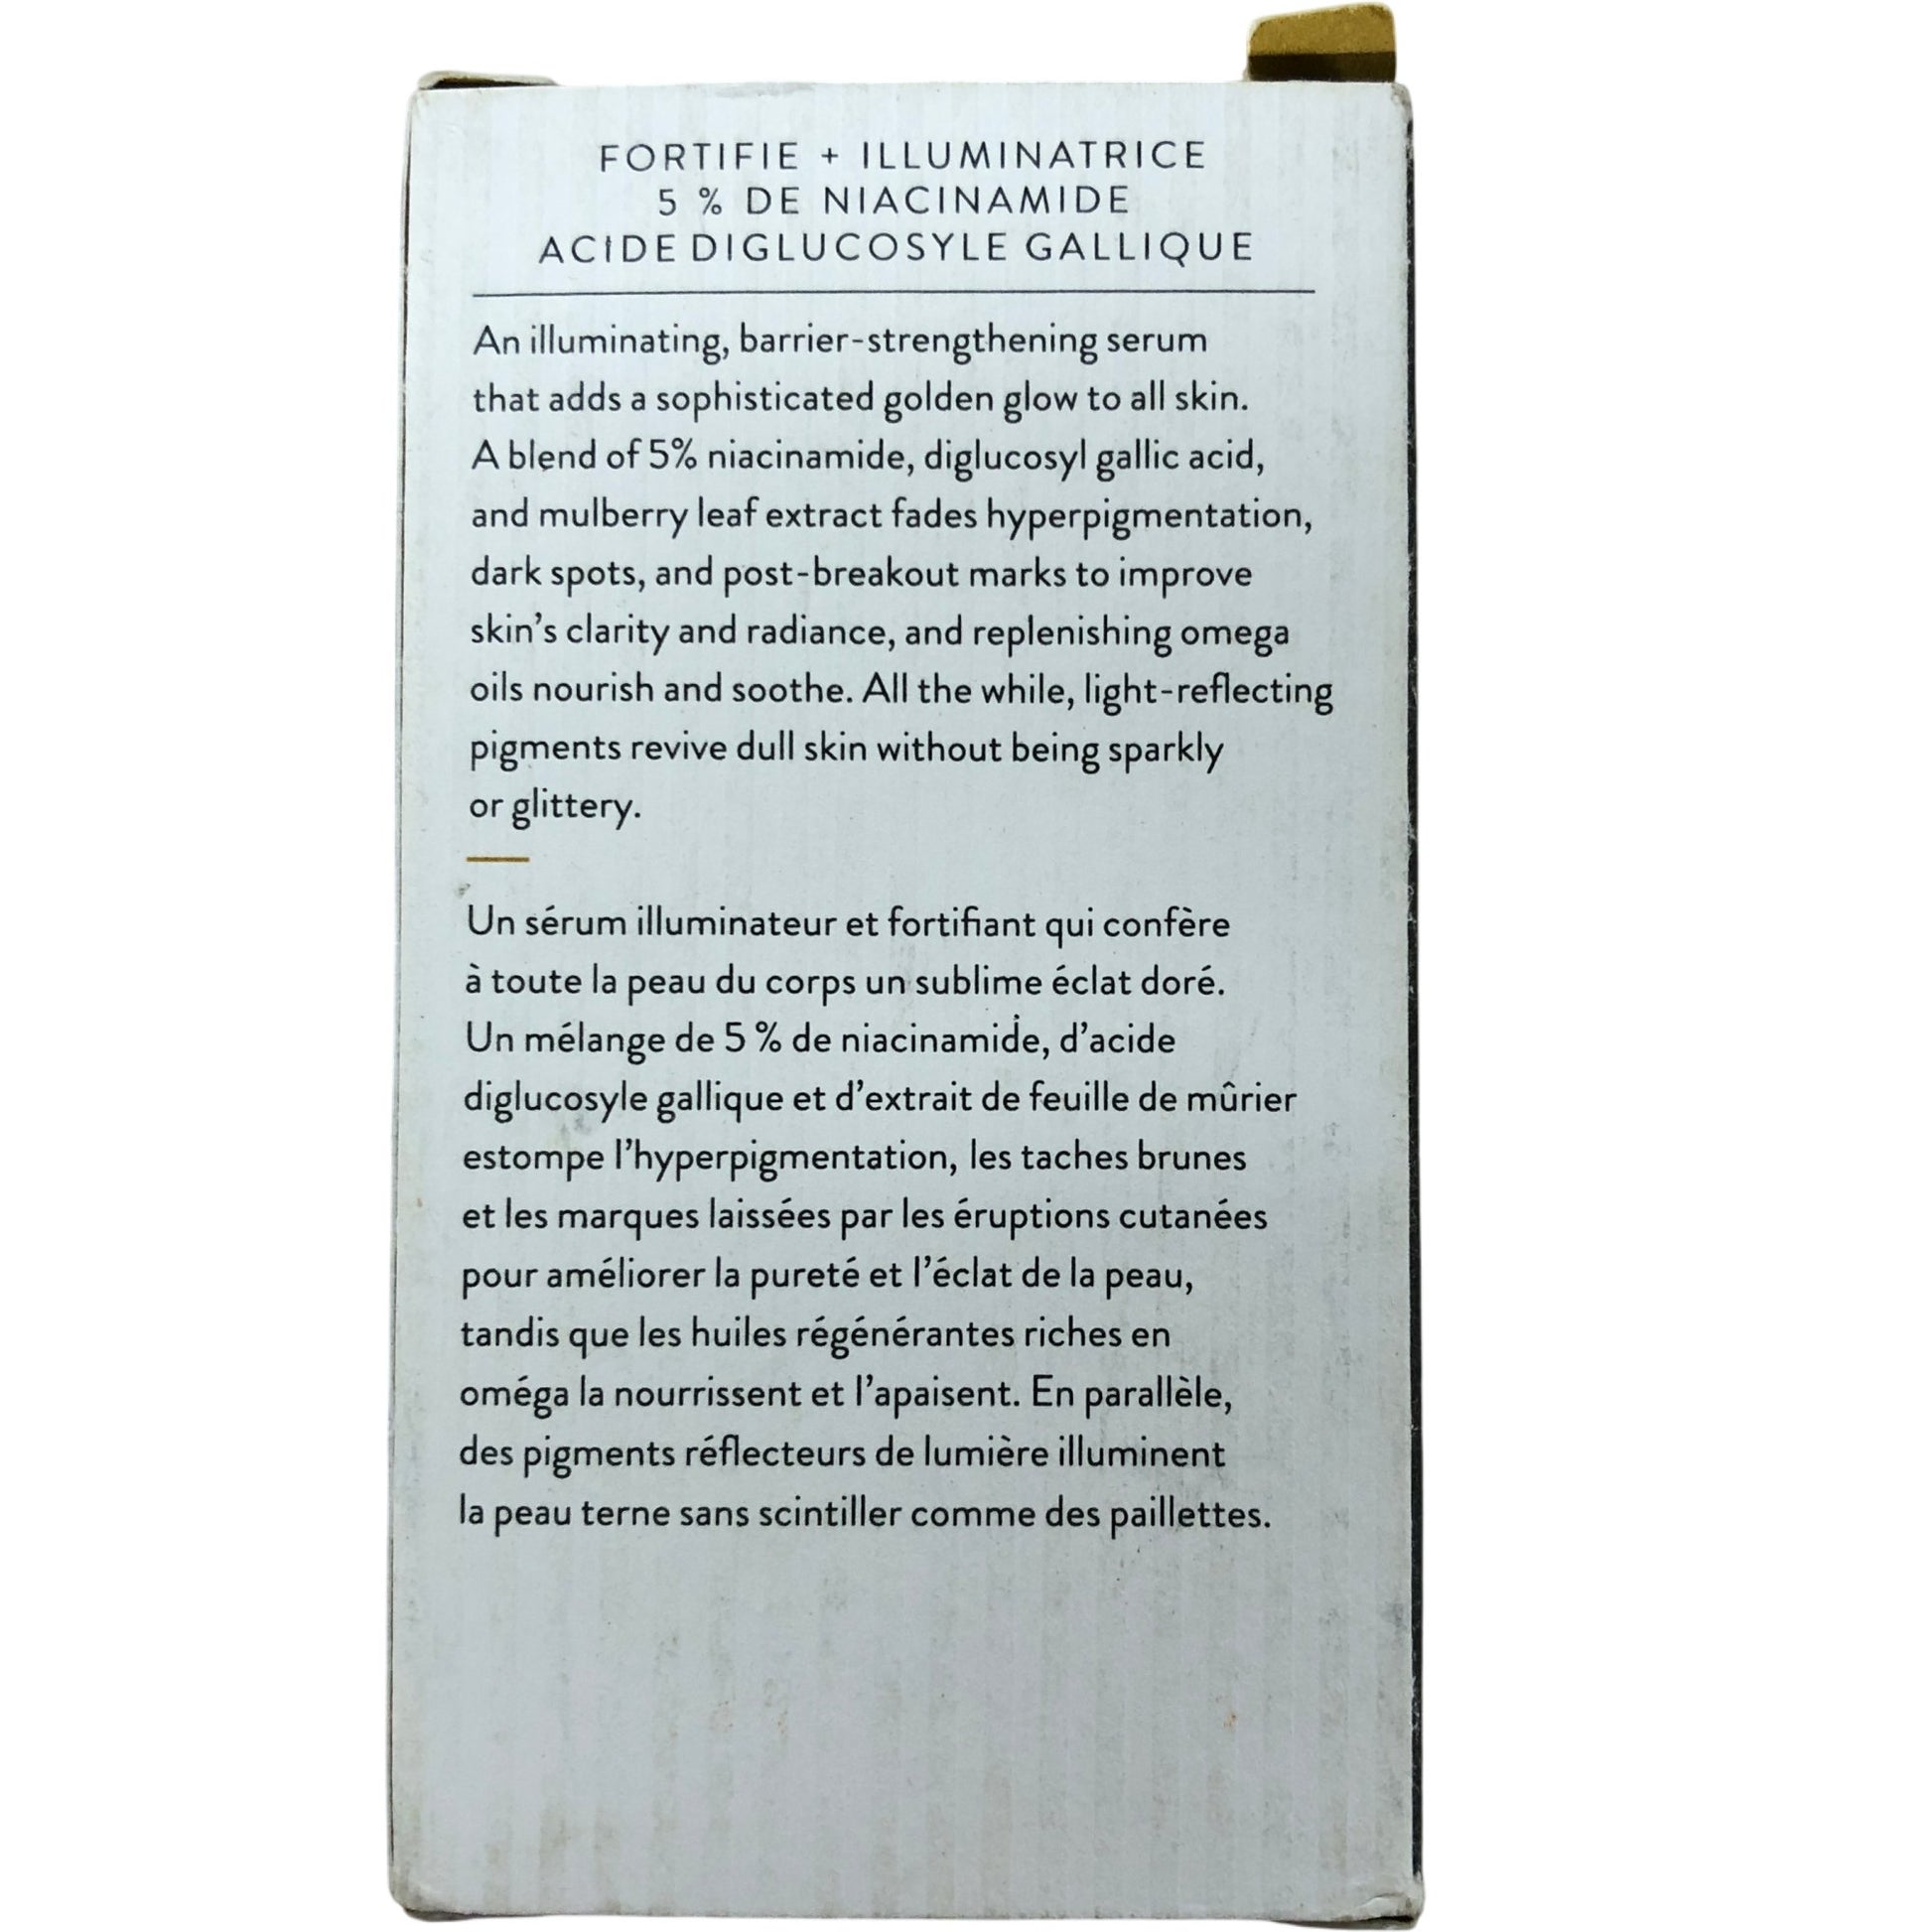 FORTIFIE + ILLUMINATRICE
5 % DE NIACINAMIDE
ACIDE DIGLUCOSYLE GALLIQUE
An illuminating, barrier-strengthening serum
that adds a sophisticated golden glow to all skin.
A blend of 5% niacinamide, diglucosyl gallic acid,
and mulberry leaf extract fades hyperpigmentation,
dark spots, and post-breakout marks to improve
skin's clarity and radiance, and replenishing omega
oils nourish and soothe. All the while, light-reflecting
pigments revive dull skin without being sparkly
or glittery.
Un sérum illuminateur et fortifiant qui confère
à toute la peau du corps un sublime éclat doré.
Un mélange de 5 % de niacinamide, d'acide
diglucosyle gallique et d'extrait de feuille de mûrier
estompe l'hyperpigmentation, les taches brunes
et les marques laissées par les éruptions cutanées
pour améliorer la pureté et l'éclat de la peau,
tandis que les huiles régénérantes riches en
oméga la nourrissent et l'apaisent. En parallèle,
des pigments réflecteurs de lumière illuminent
la peau terne sans scintiller comme des paillettes.